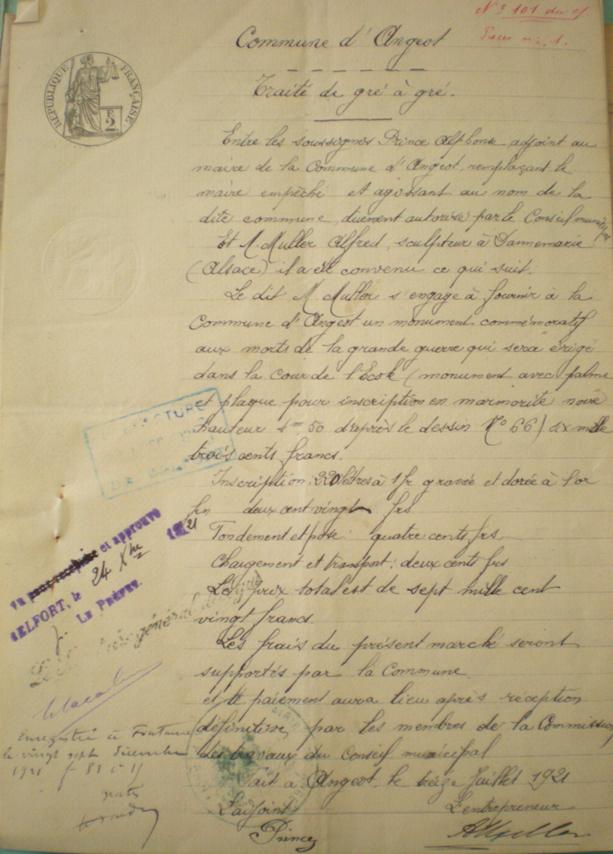 N° 101 du
Commune d'Angeot
RÉPUBLIQUE FRANÇAISE
2
Traité de gré à gré.
Entre les soussignés Prince Alphonse, adjoint au
maire de la Commune d'Angeot, remplaçant le
maire empêché et agissant au nom de la
dite commune, dûment autorisé par le Conseil municipal
Et M. Muller Alfred, sculpteur à Dannemarie
(Alsace) il a été convenu ce qui suit.
Le dit M. Muller s'engage à fournir à la
Commune d'Angeot un monument commémoratif
aux morts de la grande guerre qui sera érigé
dans la cour de l'Ecole (monument avec palme
et plaque pour inscription en marmorite noire
hauteur 50 d'après le dessin N° 66) six mille
trois cents francs.
Inscription: 220 lettres à 1fr gravée et dorée à l'or
fin deux cent vingt frs
Fondement et pose: quatre cents frs
Chargement et transport: deux cents frs
Le prix total est de sept mille cent
vingt francs.
Les frais du présent marché seront
supportés par la Commune
et le paiement aura lieu après réception
définitive, par les membres de la Commission
des travaux du Conseil municipal
Fait à Angeot, le treize Juillet 1921
L'adjoint L'entrepreneur
Prince AMuller
Vu et approuvé
BELFORT, le 24 Xbre 1921
LE PRÉFET,
général
Enregistré à Fontaine
le vingt sept décembre
1921